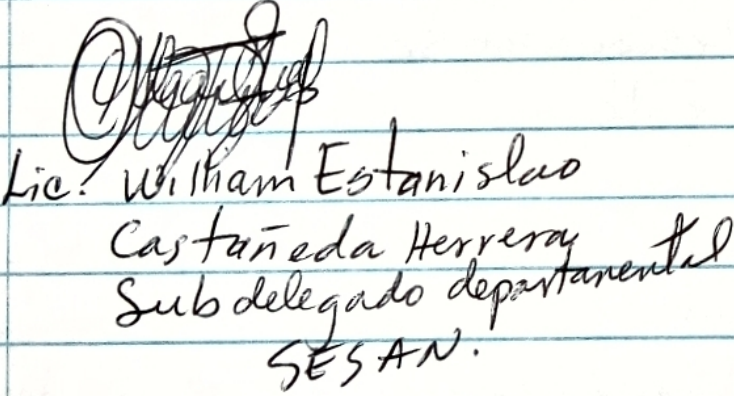 Lic. William Estanislao
Castañeda Herrera
Subdelegado departamental
SESAN.